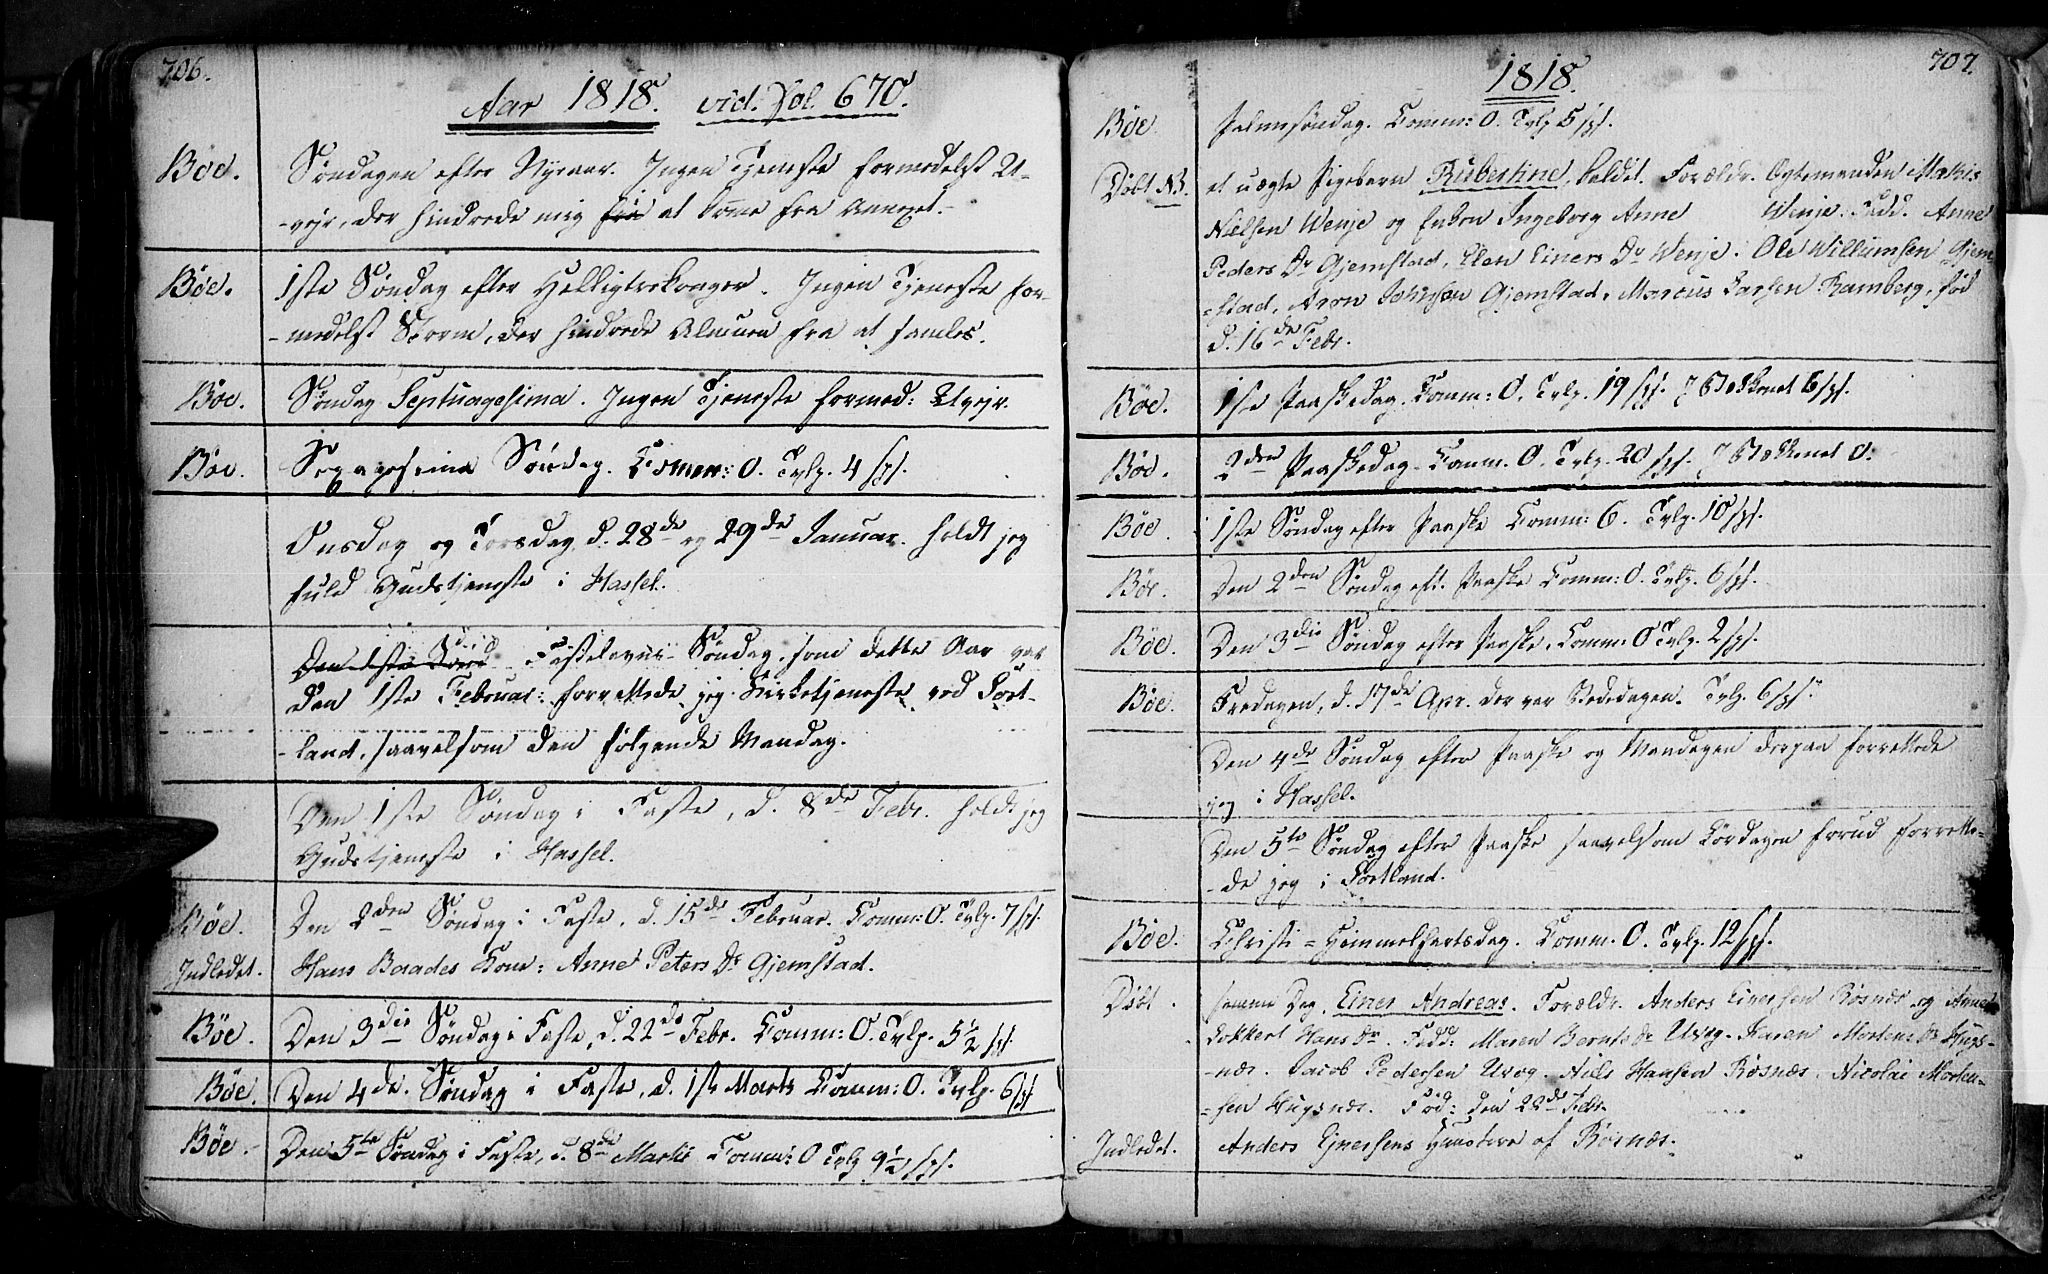 706.
Aar 1818. vid. Fol. 670.
Böe. Søndagen efter Nyeaar. Ingen Tjeneste formedelst U-
-vejr, der hindrede mig fra at komme fra Annexet.
Böe. 1ste Søndag efter Helligtrekonger. Ingen Tjeneste for-
-medelst Storm, der hindrede Almuen fra at samles.
Böe. Søndag Septuagesima. Ingen Tjeneste formed: Uvejr.
Böe. Sexagesima Søndag. Comm: 0. Tvlp. 4 sps.
Onsdag og Torsdag d. 28de og 29de Januar. holdt jeg
fuld Gudstjeneste i Hassel.
Den 1ste Fastelavns-Søndag, som dette Aar var
den 1ste Februar: forrettede jeg Kirketjeneste ved Sort-
-land, saavelsom den følgende Mandag.
Den 1ste Søndag i Faste, d. 8de Febr. holdt jeg
Gudstjeneste i Hassel.
Böe. Den 2den Søndag i Faste, d. 15de Februar. Comm: 0. Tvlp. 7 sps.
Indledet. Hans Baades Kone: Anne Peters Dr Gjemstad.
Böe. Den 3die Søndag i Faste, d. 22de Febr. Comm: 0. Tvlp. 5 1/2 sps.
Böe. Den 4de Søndag i Faste, d. 1ste Marts Comm: 0. Tvlp. 6 sps
Böe. Den 5te Søndag i Faste, d. 8de Martii Comm: 0 Tvlp 9 1/2 sps.
707.
1818.
Böe. Palmesøndag. Comm: 0. Tvlp 5 sps.
Döbt NB. et uægte Pigebarn Rubertine, kaldet. Forældr. Ægtemanden Mathis
Nielsen Wenje og Enken Ingeborg Anne Wenje. Fadd. Anne
Peders Dr Gjemstad, Elen Einers Dr Wenje. Ole Willumsen Gjem-
-stad, Aron Johnsen Gjemstad. Marcus Larsen Ramberg, fød
d. 16de Febr.
Böe. 1ste Paaskedag. Comm: 0. Tvlp. 19 sps. 6 sps.
Böe. 2den Paaskedag. Comm. 0. Tvlp. 20 sps. 0.
Böe. 1ste Søndag efter Paaske Comm: 6. Tvlp. 10 sps.
Böe. Den 2den Søndag eft. Paaske Comm: 0. Tvlp. 6 sps.
Böe. Den 3die Søndag efter Paaske. Comm: 0 Tvlp. 2 sps.
Böe. Fredagen, d. 17de Apr. der var Bededagen. Tvlp. 6 sps.
Den 4de Søndag efter Paaske og Mandagen derpaa forrettede
jeg i Hassel.
Den 5te Søndag efter Paaske saavelsom Lørdagen forud forrette-
-de jeg i Sortland.
Böe. Christi-Himmelfartsdag. Comm. 0. Tvlp. 12 sps.
Döbt. samme Dag, Einer Andreas. Forældr. Anders Einersen Røsnæs og Anne
Lokkert Hans Dr. Fadd: Maren Bernte Dr Uvog. Karen Mortens Dr Hugs-
-næs. Jacob Pedersen Uvog. Niels Hansen Røsnæs. Nicolai Morten-
-sen Hugsnæs. Fød: den 22de Febr.
Indledet. Anders Ejnersens Hustroe af Røsnæs.